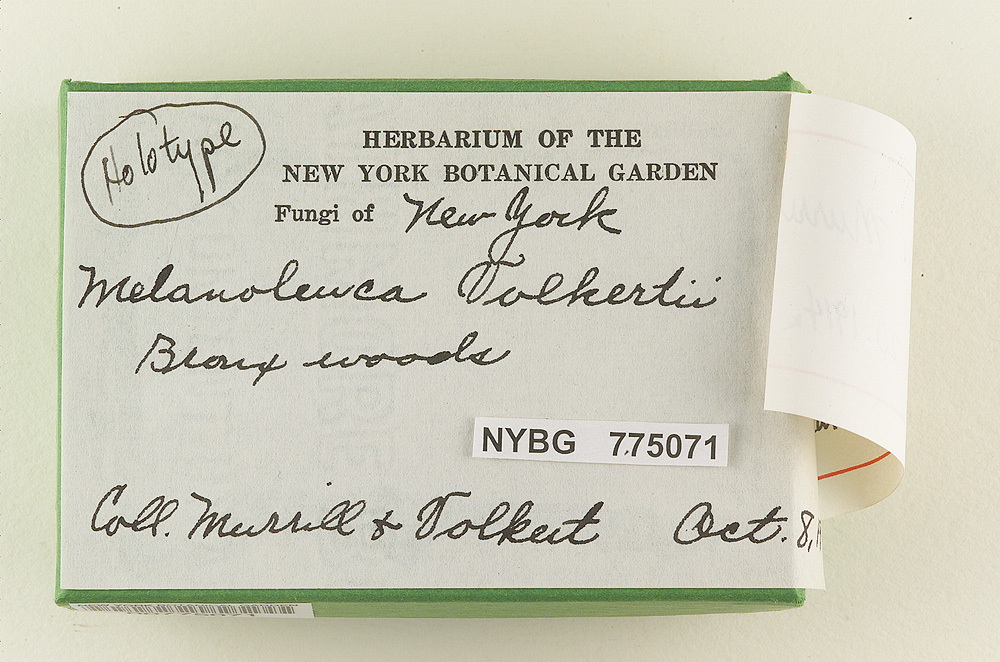 Holotype
HERBARIUM OF THE
NEW YORK BOTANICAL GARDEN
Fungi of New York
Melanoleuca Volkertii
Bronx woods
NYBG 775071
Coll. Murrill & Volkert Oct. 8,
1914